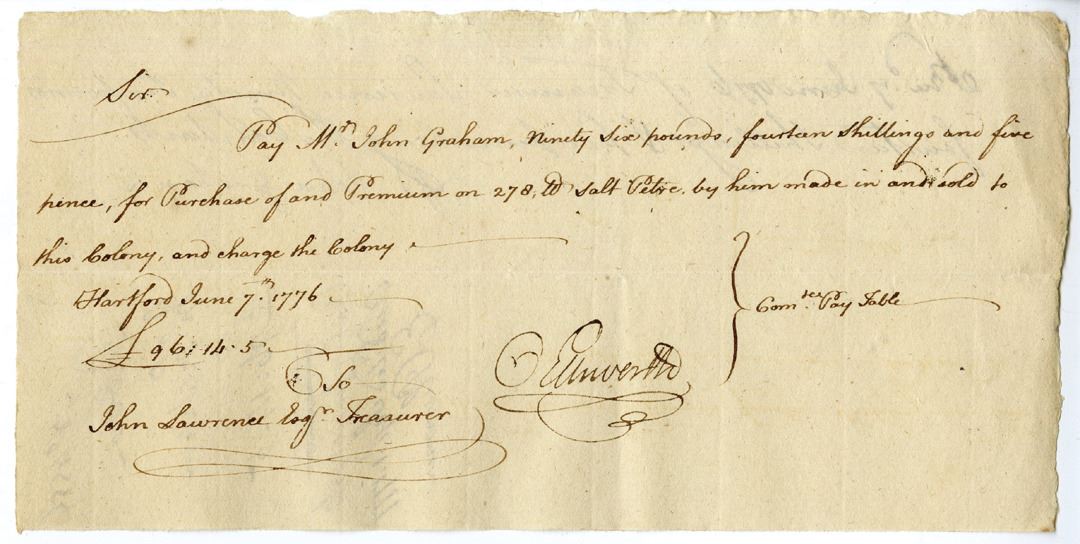 Sir.
Pay Mr. John Graham, Ninety Six pounds, fourteen Shillings and five
pence, for Purchase of and Premium on 278, lb Salt Petre. by him made in and sold to
this Colony, and charge the Colony.
Hartford June 7th. 1776
£96:14.5
Comtee Pay Table
To
OEllsworth
John Lawrence Esqr Treasurer